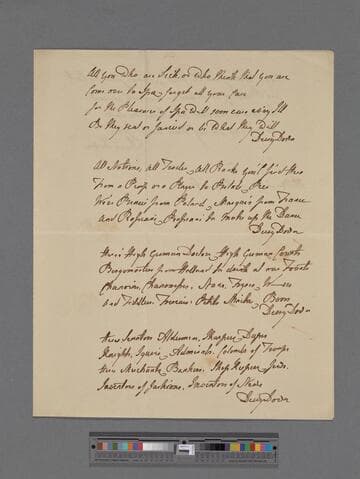 All you who are Sick, or who think that you are
Come over to Spa, forget all your Care
for the Pleasures of Spa will soon cure every Ill
Be they real or fancied or be what they Will
Derry Down
All Nations, all Trades, all Ranks you'l find there
From a Prop or a Player to Prelate, Peer
Princes from Poland, Marquis from France
and Russians, Prussians to make up the Dance
Derry Down
Here's High German Doctors, High German Counts
Burgomasters from Holland to drink at our Founts
Chanoines, Chanoinesses, Nuns, Fryers, W----s
and Fidlers, Friseurs, Petits Maitres, Boors
Derry Down
Here Senators Aldermen, Sharpers Dupes
Knights, Squires, Admirals, Colonels of Troops
Here Merchants, Bankers, Shop Keepers, Jews.
Inventors of Fashions, Inventors of News
Derry Down